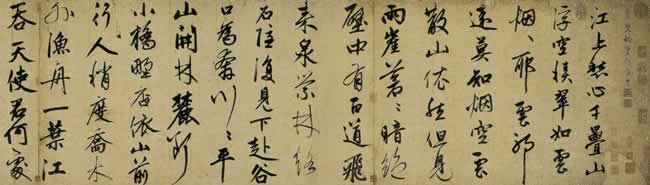 江上愁心千疊山
浮空積翠如雲
烟〻耶雲耶
遠莫知烟空雲
散山依然但見
兩崖蒼〻暗絶
壁中有百道飛
来泉縈林絡
石隱復見下赴谷
口為奔川〻平
山開林麓斷
小橋野店依山前
行人稍度喬木
外漁舟一葉江
吞天使君何處